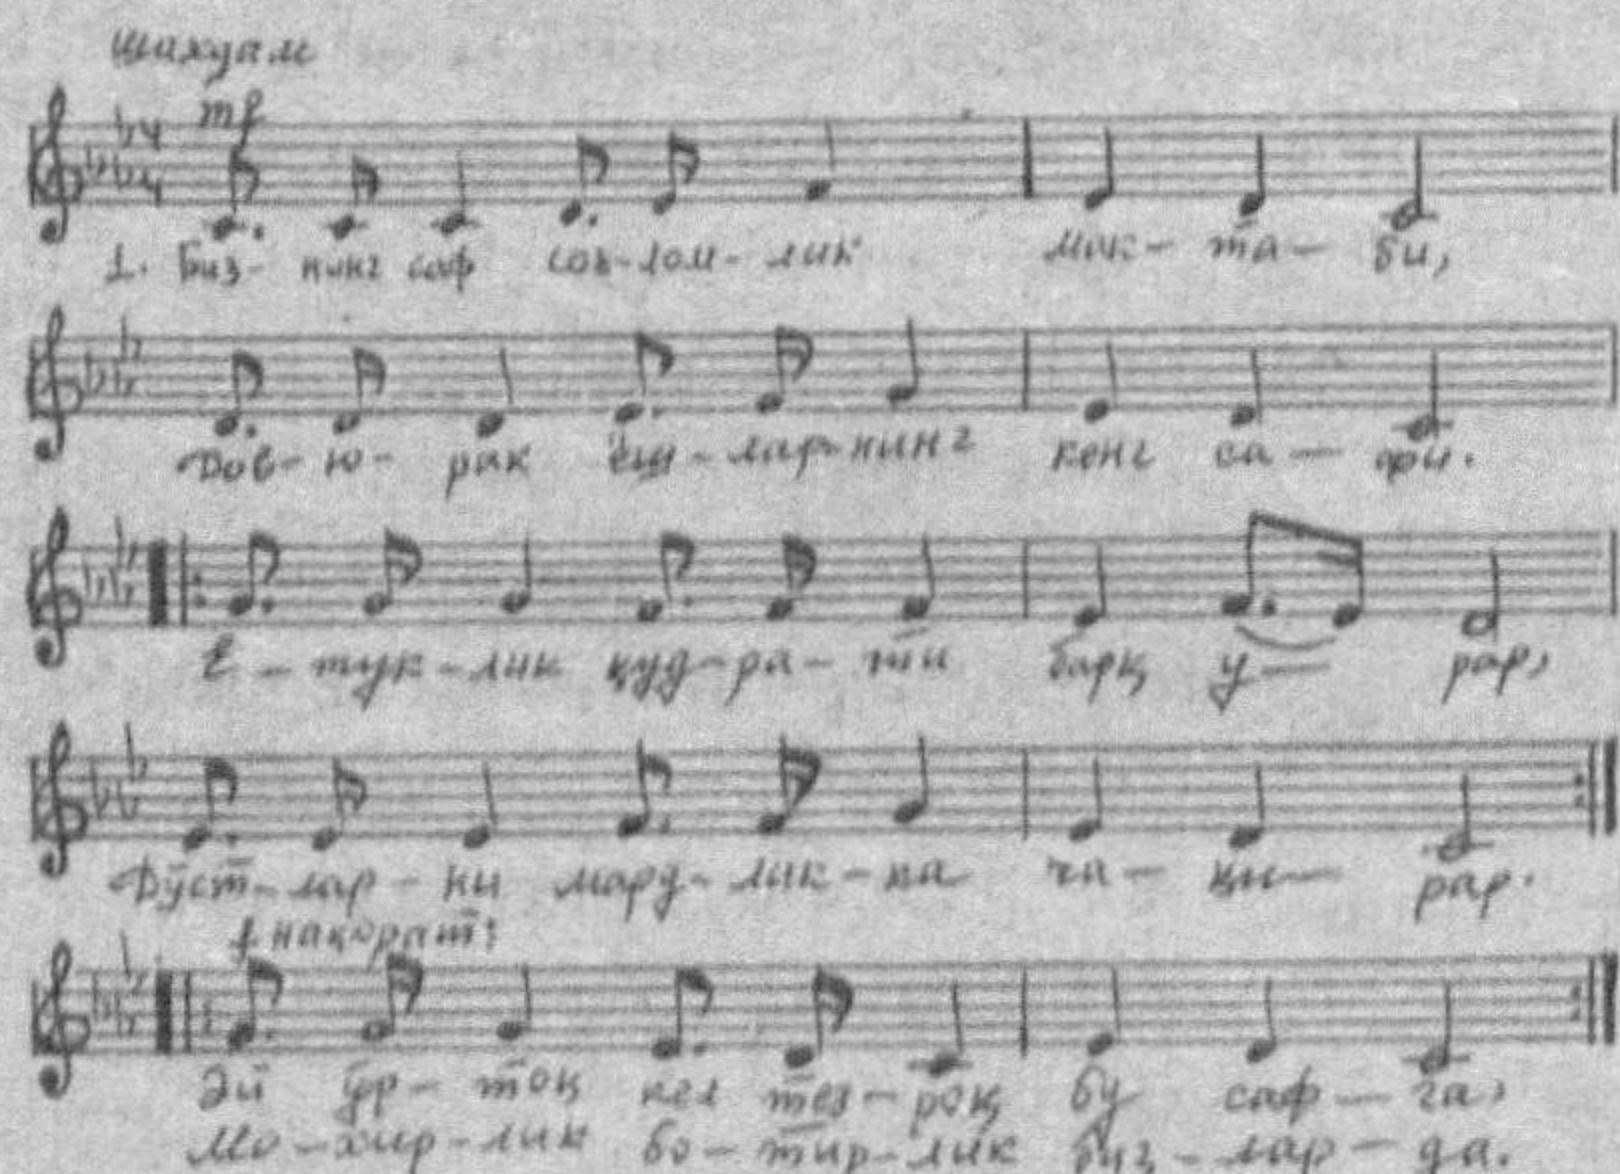 шахдам
mf
4
4
1. Биз- нинг саф соғ-лом- лик мак- та- би,
Дов- ю- рак ёш-лар-нинг кенг са- фи.
Е- тук-лик қуд-ра- ти барқ у- рар,
Дўст-лар- ни мард-лик-ка ча- қи- рар.
f нақорат:
Эй ўр- тоқ кел тез-роқ бу саф- га,
Мо-хир-лик бо-тир-лик биз-лар-да.